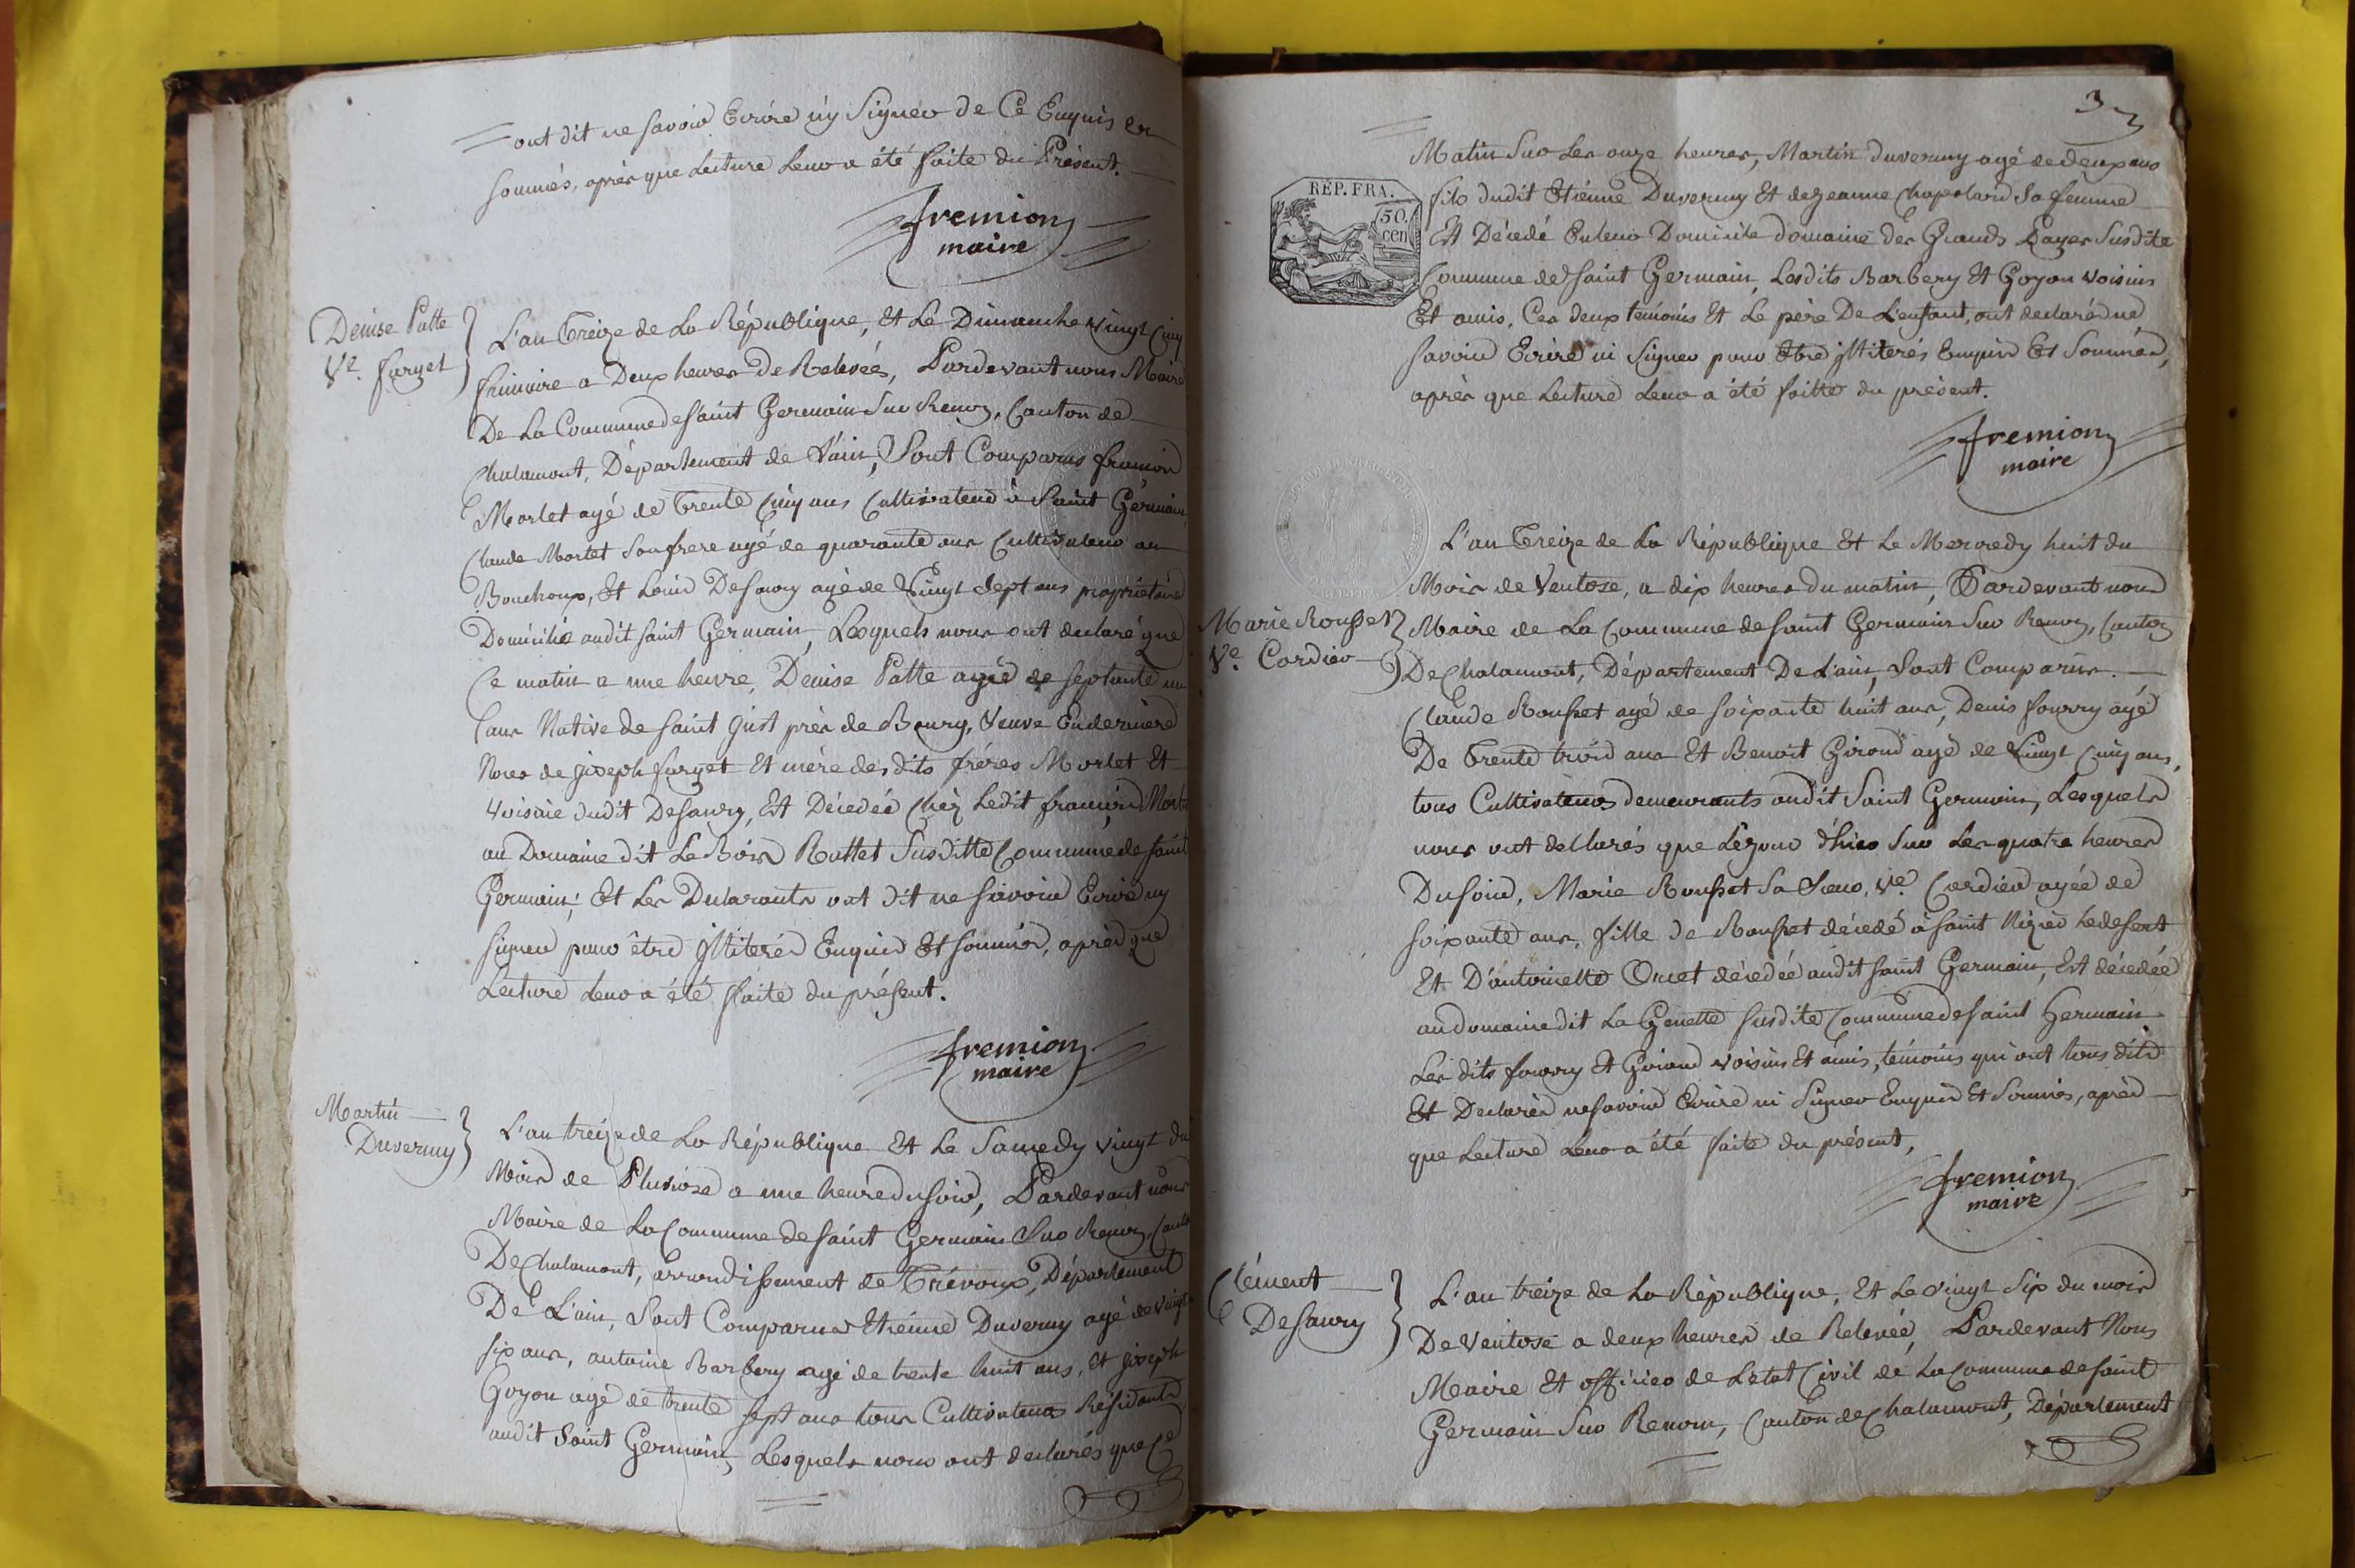 ont dit ne savoir Ecrire n'y Signer de Ce Enquis et
sommés, après que Lecture Leur a été faite du Présent.
fremion
maire
Denise Patte
Ve. farget
L'an Treize de La République, Et Le Dimanche vingt Cinq
frimaire a Deux heures De Relevées, Pardevant nous Maire
De La Commune de Saint Germain Sur Renon, Canton de
Chalamont, Département de L'ain, Sont Comparus francois
Morlet agé de Trente Cinq ans Cultivateur à Saint Germain,
Claude Morlet Son frere agé de quarante ans Cultivateur au
Bouchoux, Et Louis Desaury agé de vingt Sept ans propriétaire
Domicilié audit Saint Germain, Lesquels nous ont declaré que
Ce matin a une heure, Denise Patte agée de septante un
ans Native de Saint Just près de Bourg, Veuve En derniere
Noces de Joseph farget Et mère des dits fréres Morlet Et
voisine dudit Desaury, Est Décedée Chez Ledit francois Morlet
au Domaine dit Le Bois Rattet Susditte Commune de Saint
Germain; Et Les Declarants ont dit ne savoir Ecrire ny
signer pour être jllitérés Enquis Et sommés, après que
Lecture Leur a été faite du présent.
fremion
maire
Martin
Duverny
L'an treize de La République Et Le Samedy vingt du
Mois de Pluviose a une heure du soir, Pardevant nous
Maire de La Commune de Saint Germain Sur Renon, Canton
De Chalamont, arrondissement de Trévoux, Département
De L'ain, Sont Comparus Etienne Duverny agé de vingt
six ans, antoine Barbery agé de trente huit ans, Et joseph
Goyon agé de trente sept ans tous Cultivateurs Résidants
audit Saint Germain, Lesquels nous ont declarés que Ce
3
Matin Sur Les onze heures, Martin Duverny agé de deux ans
fils dudit Etienne Duverny Et de jeanne Chapoland Sa femme
Est Décedé En leur Domicile domaine des Grands Payes Susdite
Commune de Saint Germain, Lesdits Barbery Et Goyon voisins
Et amis, Ces deux témoins Et Le père De L'enfant, ont declaré ne
savoir Ecrire ni Signer pour être jllitérés Enquis Et Sommés,
après que Lecture Leur a été faitte du présent.
RÉP. FRA.
50.
cen
fremion
maire
L'an Treize de La République Et Le Mercredy huit du
Mois de Ventose, a dix heures du matin, Pardevant nous
Marie Rousset
Ve. Cordier
Maire de La Commune de Saint Germain Sur Renon, Canton
De Chalamont, Département De L'ain, Sont Comparus.
Claude Rousset agé de soixante huit ans, Denis fourry agé
De Trente trois ans Et Benoit Giroud agé de vingt Cinq ans,
tous Cultivateurs demeurants audit Saint Germain, Lesquels
nous ont déclarés que Le jour d'hier Sur Les quatre heures
Du soir, Marie Rousset Sa Sœur, Ve. Cordier agée de
soixante ans, fille de Rousset décedé à Saint Nizier Ledesert
Et D'antoinette Ouet décedée audit Saint Germain, Est décedée
au domaine dit La Genette susdite Commune de Saint Germain
Les dits fourry Et Giroud voisins Et amis, témoins qui ont tous dits
Et Declarés ne savoir Ecrire ni Signer Enquis Et Sommés, après
que Lecture Leur a été faite du présent,
fremion
maire
Clément
Desaury
L'an treize de La République, Et Le vingt Six du mois
De Ventose a deux heures de Relevée, Pardevant Nous
Maire Et officier de L'etat Civil de La Commune de Saint
Germain Sur Renom, Canton de Chalamont, Département